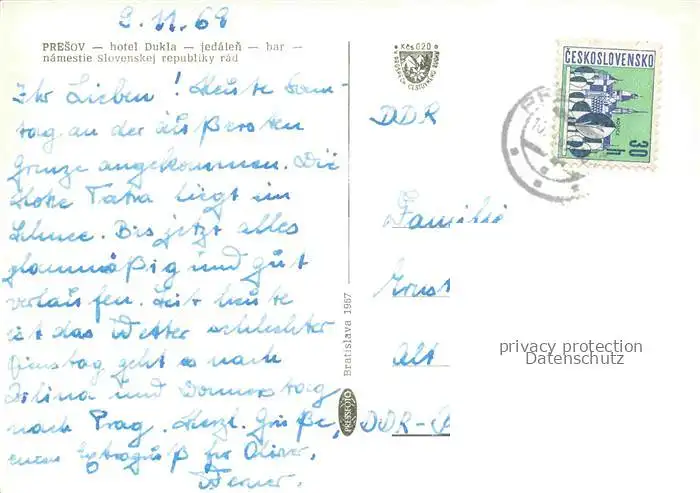 9.11.69
PREŠOV — hotel Dukla — jedáleň — bar —
námestie Slovenskej republiky rád
Ihr Lieben! Heute Sonn-
tag an der äußersten
Grenze angekommen. Die
Hohe Tatra liegt im
Schnee. Bis jetzt alles
planmäßig und gut
verlaufen. Seit heute
ist das Wetter schlechter
Dienstag geht es nach
Žilina und Donnerstag
nach Prag. Herzl. Grüße,
einen Extragruß für Oliver,
Werner.
Bratislava 1967
PRESSFOTO
Kčs 0,20
ČESKOSLOVENSKO
30 h
DDR
Familie
Ernst
Alt
DDR-
privacy protection
Datenschutz